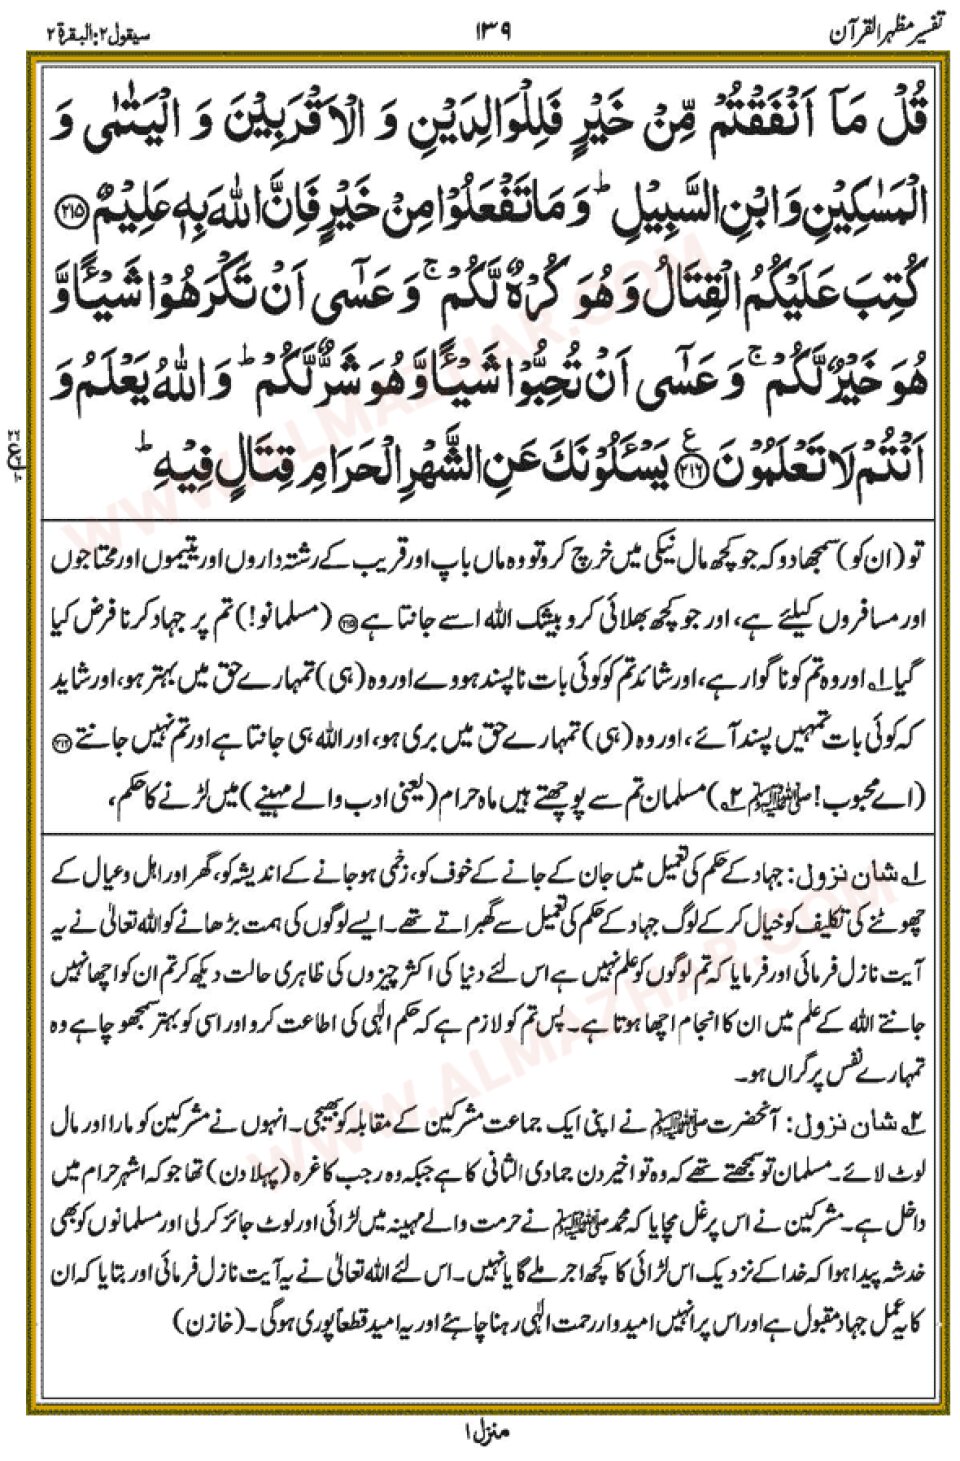 تفسیر مظہر القرآن
۱۳۹
سیقول ۲: البقرۃ ۲
قُلْ مَآ اَنْفَقْتُمْ مِّنْ خَیْرٍ فَلِلْوَالِدَیْنِ وَ الْاَقْرَبِیْنَ وَ الْیَتٰمٰی وَ
الْمَسٰکِیْنِ وَ ابْنِ السَّبِیْلِ ؕ وَ مَا تَفْعَلُوْا مِنْ خَیْرٍ فَاِنَّ اللّٰہَ بِہٖ عَلِیْمٌ ﴿۲۱۵﴾
کُتِبَ عَلَیْکُمُ الْقِتَالُ وَ ھُوَ کُرْہٌ لَّکُمْ ۚ وَ عَسٰٓی اَنْ تَکْرَھُوْا شَیْئًا وَّ
ھُوَ خَیْرٌ لَّکُمْ ۚ وَ عَسٰٓی اَنْ تُحِبُّوْا شَیْئًا وَّ ھُوَ شَرٌّ لَّکُمْ ؕ وَ اللّٰہُ یَعْلَمُ وَ
اَنْتُمْ لَا تَعْلَمُوْنَ ﴿۲۱۶﴾ ع یَسْئَلُوْنَکَ عَنِ الشَّھْرِ الْحَرَامِ قِتَالٍ فِیْہِ ؕ
تو (ان کو) سمجھا دو کہ جو کچھ مال نیکی میں خرچ کرو تو وہ ماں باپ اور قریب کے رشتہ داروں اور یتیموں اور محتاجوں
اور مسافروں کیلئے ہے، اور جو کچھ بھلائی کرو بیشک اللہ اسے جانتا ہے ﴿۲۱۵﴾ (مسلمانو!) تم پر جہاد کرنا فرض کیا
گیا ۱؎ اور وہ تم کو ناگوار ہے، اور شائد تم کو کوئی بات ناپسند ہووے اور وہ (ہی) تمہارے حق میں بہتر ہو، اور شاید
کہ کوئی بات تمہیں پسند آئے، اور وہ (ہی) تمہارے حق میں بری ہو، اور اللہ ہی جانتا ہے اور تم نہیں جانتے ﴿۲۱۶﴾
(اے محبوب! ﷺ ۲؎) مسلمان تم سے پوچھتے ہیں ماہ حرام (یعنی ادب والے مہینے) میں لڑنے کا حکم،
۱؎ شان نزول: جہاد کے حکم کی تعمیل میں جان کے جانے کے خوف کو، زخمی ہو جانے کے اندیشہ کو، گھر اور اہل و عیال کے
چھوٹنے کی تکلیف کو خیال کر کے لوگ جہاد کے حکم کی تعمیل سے گھبراتے تھے۔ ایسے لوگوں کی ہمت بڑھانے کو اللہ تعالیٰ نے یہ
آیت نازل فرمائی اور فرمایا کہ تم لوگوں کو علم نہیں ہے اس لئے دنیا کی اکثر چیزوں کی ظاہری حالت دیکھ کر تم ان کو اچھا نہیں
جانتے اللہ کے علم میں ان کا انجام اچھا ہوتا ہے۔ پس تم کو لازم ہے کہ حکم الٰہی کی اطاعت کرو اور اسی کو بہتر سمجھو چاہے وہ
تمہارے نفس پر گراں ہو۔
۲؎ شان نزول: آنحضرت ﷺ نے اپنی ایک جماعت مشرکین کے مقابلہ کو بھیجی۔ انہوں نے مشرکین کو مارا اور مال
لوٹ لائے۔ مسلمان تو سمجھتے تھے کہ وہ تو اخیر دن جمادی الثانی کا ہے جبکہ وہ رجب کا غرہ (پہلا دن) تھا جو کہ اشہر حرام میں
داخل ہے۔ مشرکین نے اس پر غل مچایا کہ محمد ﷺ نے حرمت والے مہینہ میں لڑائی اور لوٹ جائز کر لی اور مسلمانوں کو بھی
خدشہ پیدا ہوا کہ خدا کے نزدیک اس لڑائی کا کچھ اجر ملے گا یا نہیں۔ اس لئے اللہ تعالیٰ نے یہ آیت نازل فرمائی اور بتایا کہ ان
کا یہ عمل جہاد مقبول ہے اور اس پر انہیں امیدوار رحمت الٰہی رہنا چاہئے اور یہ امید قطعاً پوری ہوگی۔ (خازن)
منزل ۱
WWW.ALMAZHAR.COM
WWW.ALMAZHAR.COM